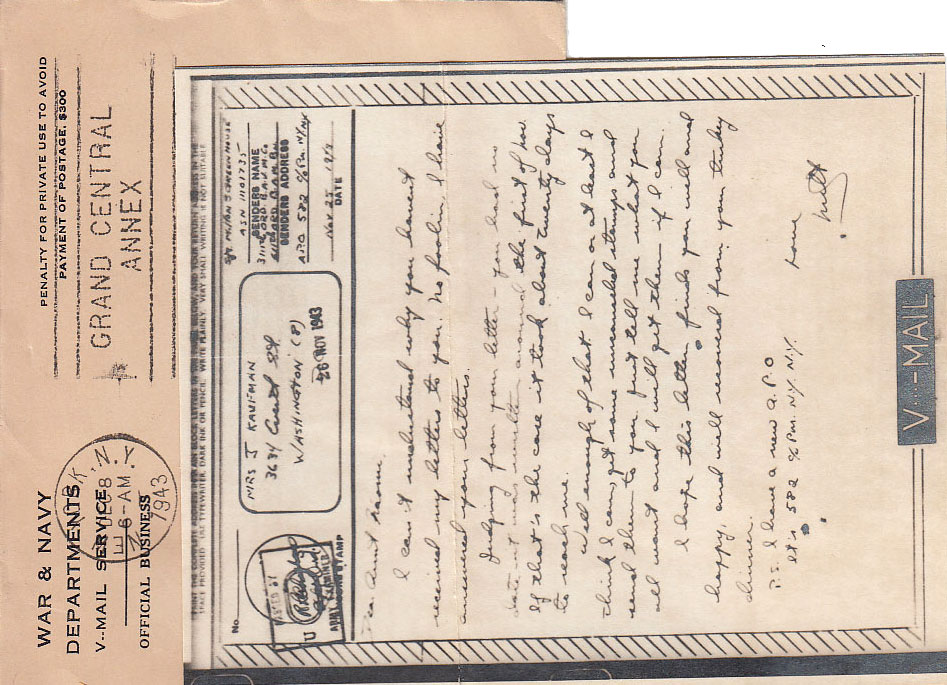 WAR & NAVY
DEPARTMENTS
V--MAIL SERVICE
OFFICIAL BUSINESS
N.Y.
DEC 8
6-AM
1943
PENALTY FOR PRIVATE USE TO AVOID
PAYMENT OF POSTAGE, $300
GRAND CENTRAL
ANNEX
PRINT THE COMPLETE ADDRESS IN PLAIN BLOCK LETTERS IN THE BELOW, AND YOUR RETURN ADDRESS IN THE
SPACE PROVIDED. USE TYPEWRITER, DARK INK OR PENCIL. WRITE PLAINLY. VERY SMALL WRITING IS NOT SUITABLE.
No.
PASSED BY
U
ARMY EXAMINER
ARMY CENSOR'S STAMP
MRS J KAUFMAN
3634 St
WASHINGTON (8)
26 NOV 1943
GREENHOUSE
ASN 11101735
SENDERS NAME
3111th ORD B.A.V.M. Co
ORD B.A.M. Bn
SENDERS ADDRESS
APO 582 c/o P.M. NY NY
Nov 25 194
DATE
Dear Aunt
I can't understand why you havent
received my letters to you. No foolin, I have
answered your letters.
Judging from your letter - you had no
date - it was written around the first of Nov.
If that's the case it took about twenty days
to reach me.
Well enough of that. I can or at least I
think I can, get some unused stamps and
send them to you. Just tell me what you
all want and I will get them if I can.
I hope this letter finds you well and
happy, and well recovered from your turkey
dinner.
Love
Milt
P.S. I have a new A.P.O
It's 582 c/o P.M. N.Y. N.Y.
V···—MAIL